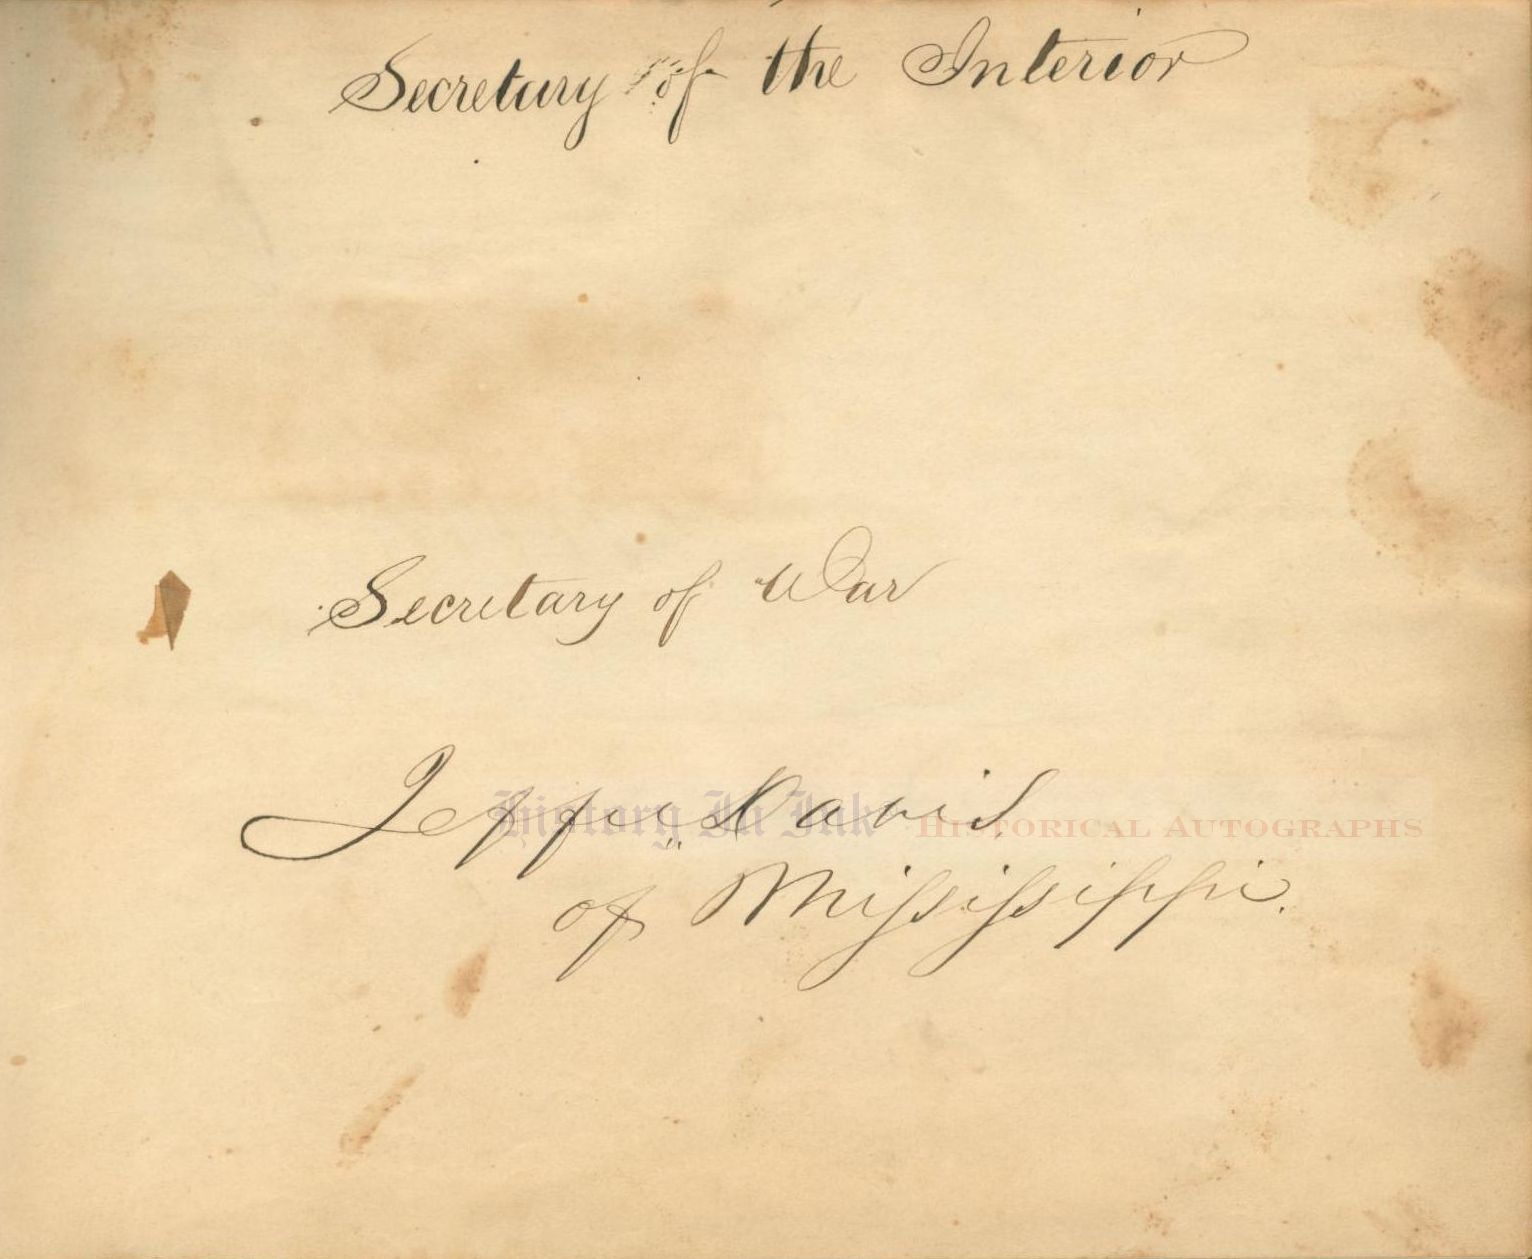 Secretary of the Interior
Secretary of War
Jeffn. Davis
History In Ink HISTORICAL AUTOGRAPHS
of Mississippi.